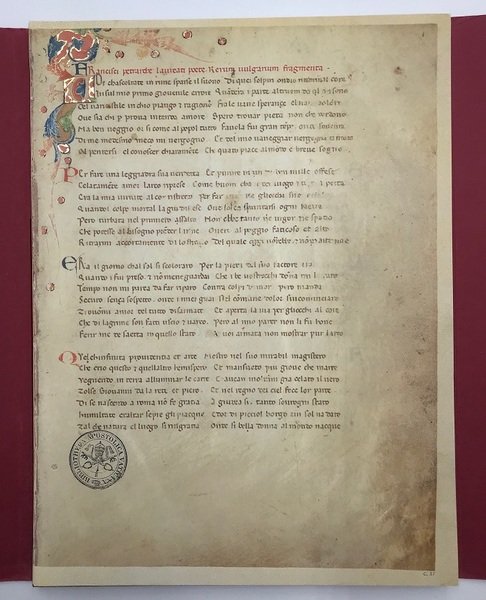 Francisci petrarche laureati poete. Rerum vulgarium fragmenta.
Voi chascoltate in rime sparse il suono. Di quei sospiri ondio nudriva l core
In sul mio primo giovenile errore Quandera in parte altruom da quel chi sono
Del vario stile in chio piango 7 ragiono Fra le vane speranze el van dolore
Oue sia chi per prova intenda amore Spero trovar pieta non che perdono
Ma ben veggio or si come al popol tutto Favola fui gran tempo onde sovente
Di me medesmo meco mi vergogno Et del mio vaneggiar vergogna
El pentersi el conoscer chiaramente Che quanto piace al mondo e breve sogno
Per fare una leggiadra sua vendetta Et punire in un di ben mille offese
Celatamente amor larco riprese Come huom che a nocer luogo 7 tempo aspetta
Era la mia virtute al cor ristretta Per far ivi 7 ne gliocchi sue
Quandol colpo mortal la giu discese Oue solea spuntarsi ogni saetta
Pero turbata nel primiero assalto Non ebbe tanto ne vigor ne spatio
Che potesse al bisogno prender larme Overo al poggio faticoso et alto
Ritrarmi accortamente da lo stratio Del quale oggi vorrebbe 7 non po aitarme
Era il giorno chal sol si scoloraro Per la pieta del suo factore i rai
Quando i fui preso 7 non me guardai Che i be vostrocchi donna mi legaro
Tempo non mi parea da far riparo Contra colpi damor pero mandai
Securo senza sospetto onde i miei guai Nel comune dolor sincominciaro
Trovommi amor del tutto disarmato Et aperta la via per gliocchi al core
Che di lagrime son fatti uscio 7 varco Pero al mio parer non li fu honore
Ferir me de saetta in quello stato A voi armata non mostrar pur larco
Quel chinfinita providentia et arte Mostro nel suo mirabil magistero
Che crio questo 7 quellaltro hemispero Et mansueto piu giove che marte
Vegnendo in terra alluminar le carte Chavean moltanni gia celato il vero
Tolse Giovanni da la rete et piero Et nel regno del ciel fece lor parte
Di se nascendo a roma non fe gratia A giudea si tanto sovrogni stato
Humiltate exaltar sempre gli piacque Et or di picciol borgo un sol na dato
Tal che natura el luogo si ringratia Onde si bella donna al mondo nacque
BIBLIOTHECA APOSTOLICA VATICANA